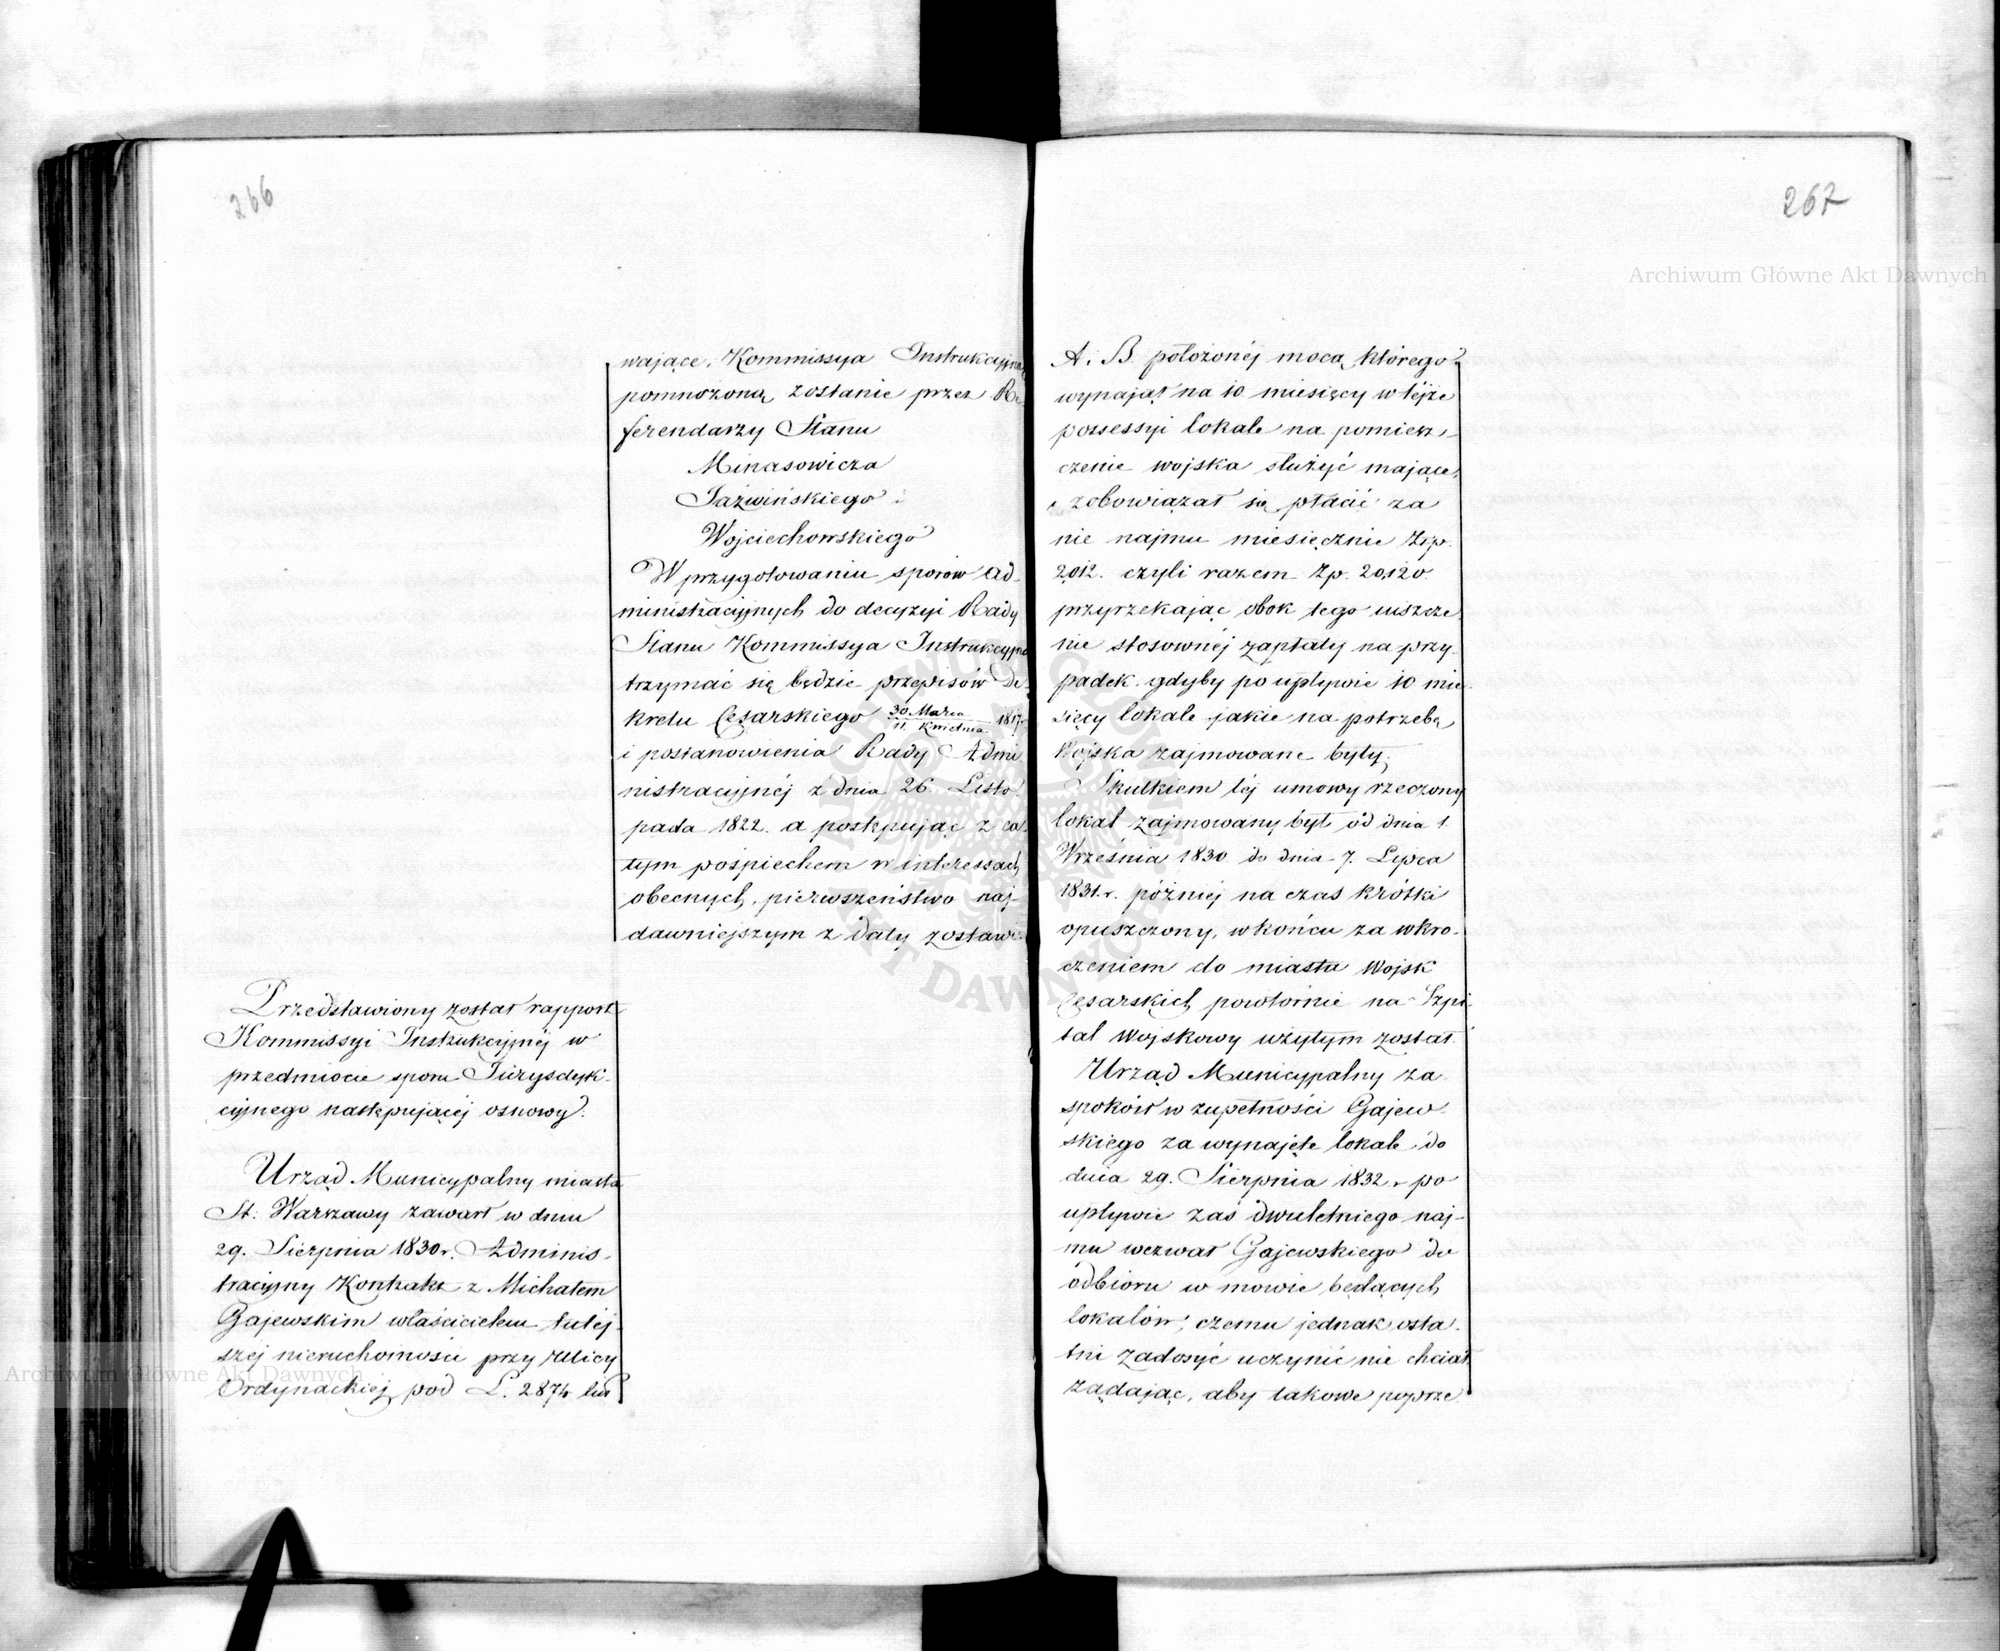 266
wające. Kommissya Instrukcyjna
pomnożoną zostanie przez Re
ferendarzy Stanu
Minasowicza
Jaźwińskiego
Wojciechowskiego
W przygotowaniu sporów ad-
ministracyjnych do decyzyi Rady
Stanu Kommissya Instrukcyjna
trzymać się będzie przepisów De-
kretu Cesarskiego 30 Marca / 11 Kwietnia 1817
i postanowienia Rady Admi
nistracyjnéj z dnia 26. Listo
pada 1822. a postępując z ca-
łym pośpiechem w interessach
obecnych, pierwszeństwo naj-
dawniejszym z daty zostawi.
Przedstawiony został rapport
Kommissyi Instrukcyjnéj w
przedmiocie sporu Juryzdyk-
cyjnego następującéj osnowy:
Urząd Municypalny miasta
St: Warszawy zawarł w dniu
29. Sierpnia 1830 r. Adminis-
tracyjny Kontrakt z Michałem
Gajewskim właścicielem tutéj-
szej nieruchomości przy Ulicy
Ordynackiej pod L. 2874 lit
267
A. B położonéj mocą którego
wynajął na 10 miesięcy w téjże
possessyi lokale na pomiesz-
czenie wojska służyć mające,
i zobowiązał się płacić za
nie najmu miesięcznie Złp.
2,012. czyli razem Zp. 20,120.
przyrzekając obok tego uiszcze-
nie stosownéj zapłaty na przy-
padek gdyby po upływie 10 mie-
sięcy lokale jakie na potrzebę
Wojska zajmowane były.
Skutkiem téj umowy rzeczony
lokal zajmowany był od dnia 1
Września 1830 do dnia 7. Lipca
1831 r. późniéj na czas krótki
opuszczony, w końcu za wkro-
czeniem do miasta Wojsk
Cesarskich powtórnie na Szpi-
tal Wojskowy użytym został.
Urząd Municypalny za-
spokoił w zupełności Gajew-
skiego za wynajęte lokale do
dnia 29. Sierpnia 1832. r po
upływie zaś dwuletniego naj-
mu wezwał Gajewskiego do
odbioru w mowie będących
lokalów, czemu jednak osta-
tni zadosyć uczynić nie chciał
żądając, aby takowe poprze
Archiwum Główne Akt Dawnych
Archiwum Główne Akt Dawnych